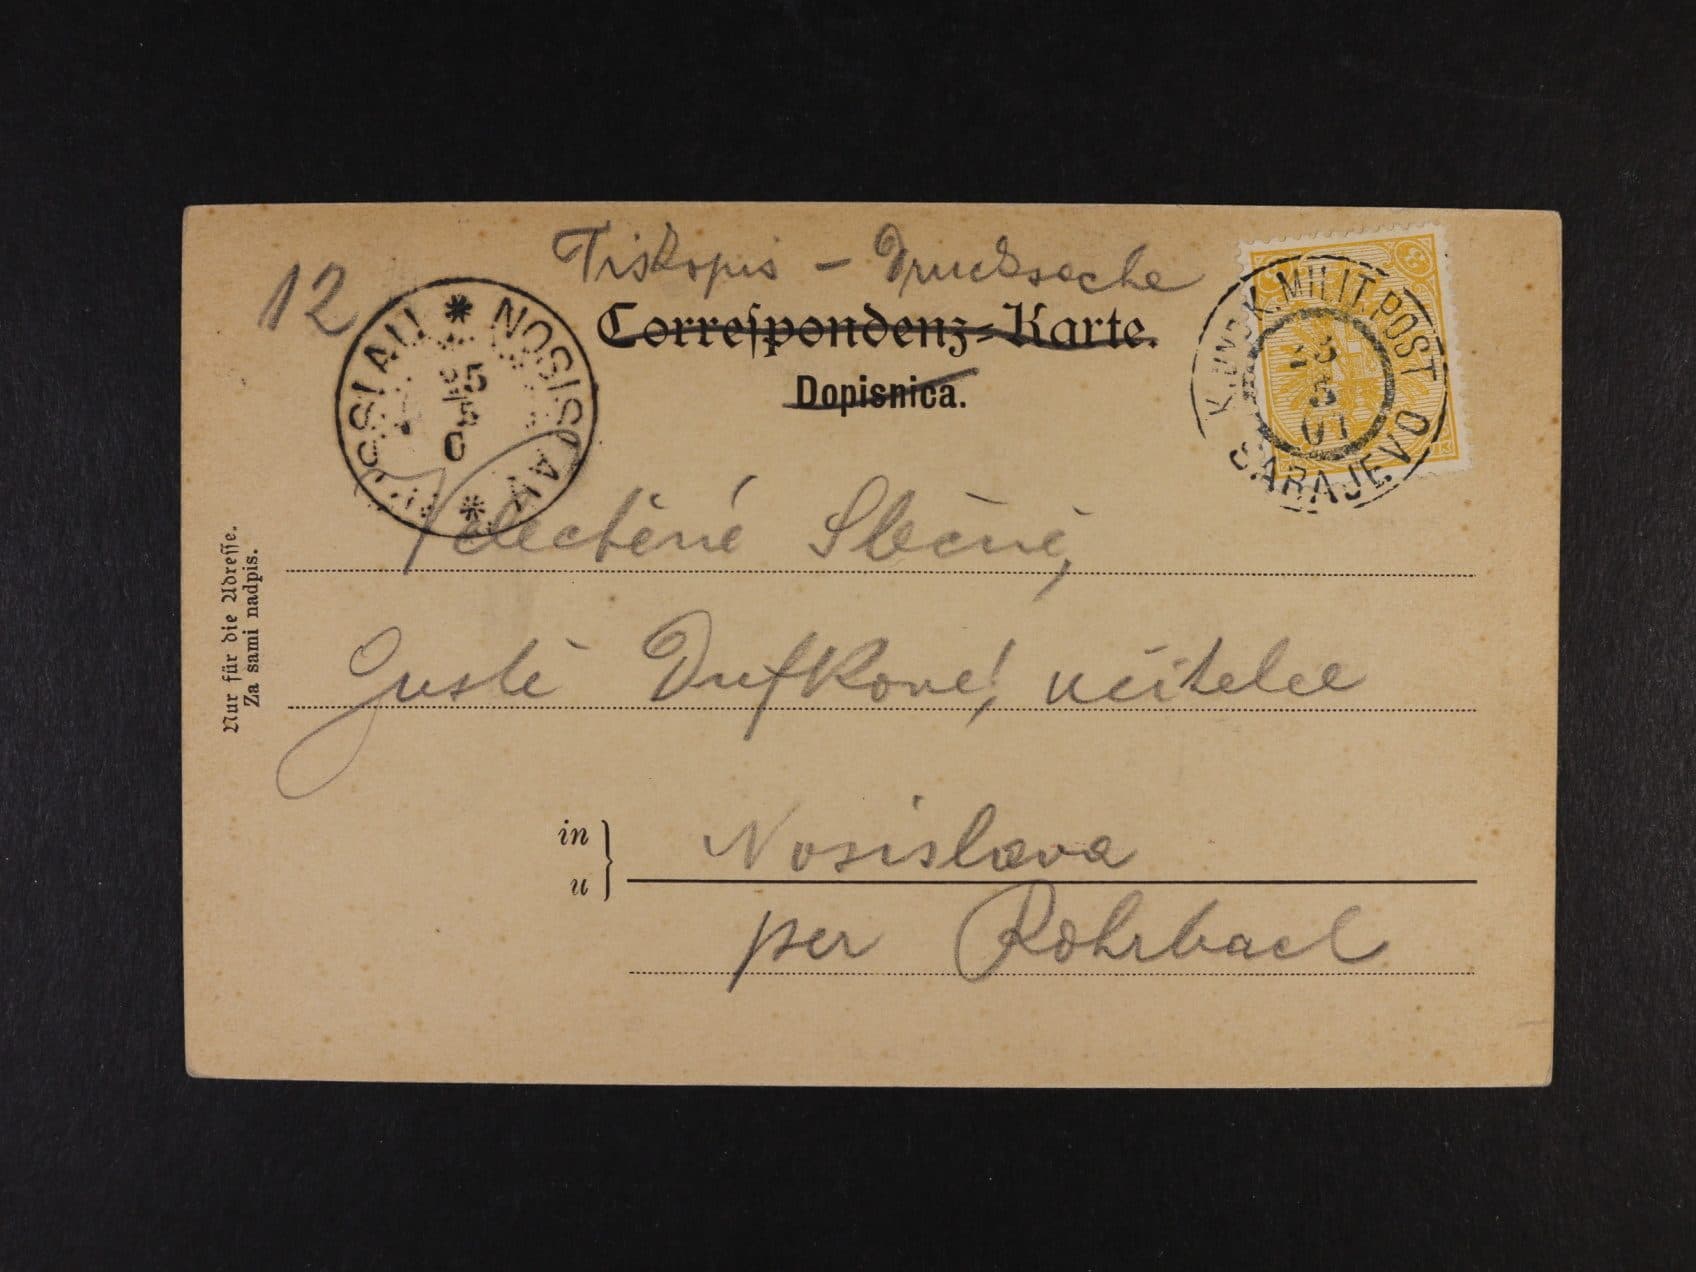 12
Tiskopis – Drucksache
Correſpondenz-Karte.
Dopisnica.
NUSSLAU * NOSISLAV *
5
5
K. UND K. MILIT. POST
SARAJEVO
5
01
3
Velectěné Slečně,
Gustě Dufkové, učitelce
in
u
Nosislava
per Rohrbach
Nur für die Adreſſe.
Za sami nadpis.